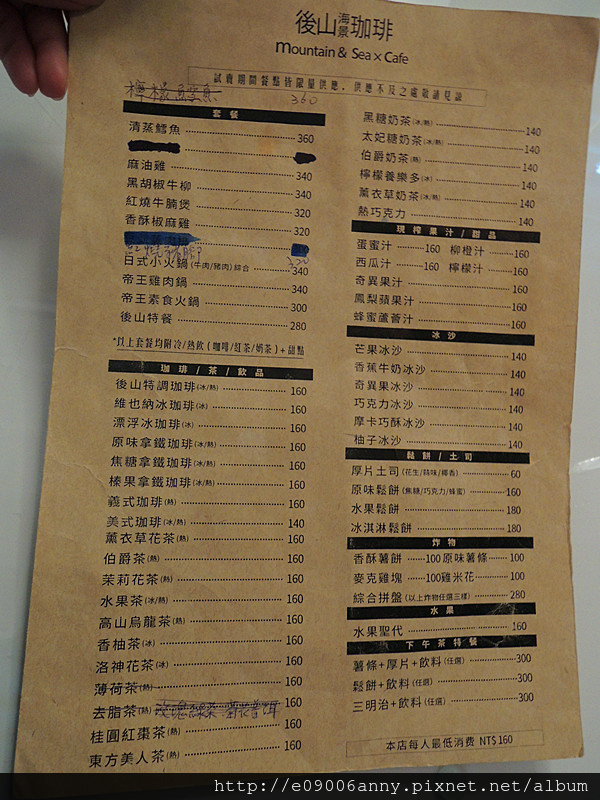 後山海景珈琲
Mountain & Sea x Cafe
試賣期間餐點皆限量供應，供應不及之處敬請見諒
檸檬鱈魚 360
套餐
清蒸鱈魚 360
麻油雞 340
黑胡椒牛柳 340
紅燒牛腩煲 320
香酥椒麻雞 320
紅燒豬腳 320
日式小火鍋(牛肉/豬肉)綜合 340
帝王雞肉鍋 340
帝王素食火鍋 300
後山特餐 280
*以上套餐均附冷/熱飲(咖啡/紅茶/奶茶)+甜點
珈琲/茶/飲品
後山特調珈琲(冰/熱) 160
維也納冰珈琲(冰) 160
漂浮冰珈琲(冰) 160
原味拿鐵珈琲(冰/熱) 160
焦糖拿鐵珈琲(冰/熱) 160
榛果拿鐵珈琲(冰/熱) 160
義式珈琲(熱) 160
美式珈琲(冰/熱) 140
薰衣草花茶(熱) 160
伯爵茶(熱) 160
茉莉花茶(熱) 160
水果茶(冰/熱) 160
高山烏龍茶(熱) 160
香柚茶(冰) 160
洛神花茶(冰) 160
薄荷茶(熱) 160
去脂茶(熱) 160
桂圓紅棗茶(熱) 160
東方美人茶(熱) 160
黑糖奶茶(冰/熱) 140
太妃糖奶茶(冰/熱) 140
伯爵奶茶(熱) 140
檸檬養樂多(冰) 140
薰衣草奶茶(冰/熱) 140
熱巧克力 140
現榨果汁/甜品
蛋蜜汁 160 柳橙汁 160
西瓜汁 160 檸檬汁 160
奇異果汁 160
鳳梨蘋果汁 160
蜂蜜蘆薈汁 160
冰沙
芒果冰沙 140
香蕉牛奶冰沙 140
奇異果冰沙 140
巧克力冰沙 140
摩卡巧酥冰沙 140
柚子冰沙 140
鬆餅/土司
厚片土司(花生/蒜味/椰香) 60
原味鬆餅(焦糖/巧克力/蜂蜜) 160
水果鬆餅 180
冰淇淋鬆餅 180
炸物
香酥薯餅 100 原味薯條 100
麥克雞塊 100 雞米花 100
綜合拼盤(以上炸物任選三樣) 280
水果
水果聖代 160
下午茶特餐
薯條+厚片+飲料(任選) 300
鬆餅+飲料(任選) 300
三明治+飲料(任選) 300
本店每人最低消費 NT$160
http://e09006anny.pixnet.net/album